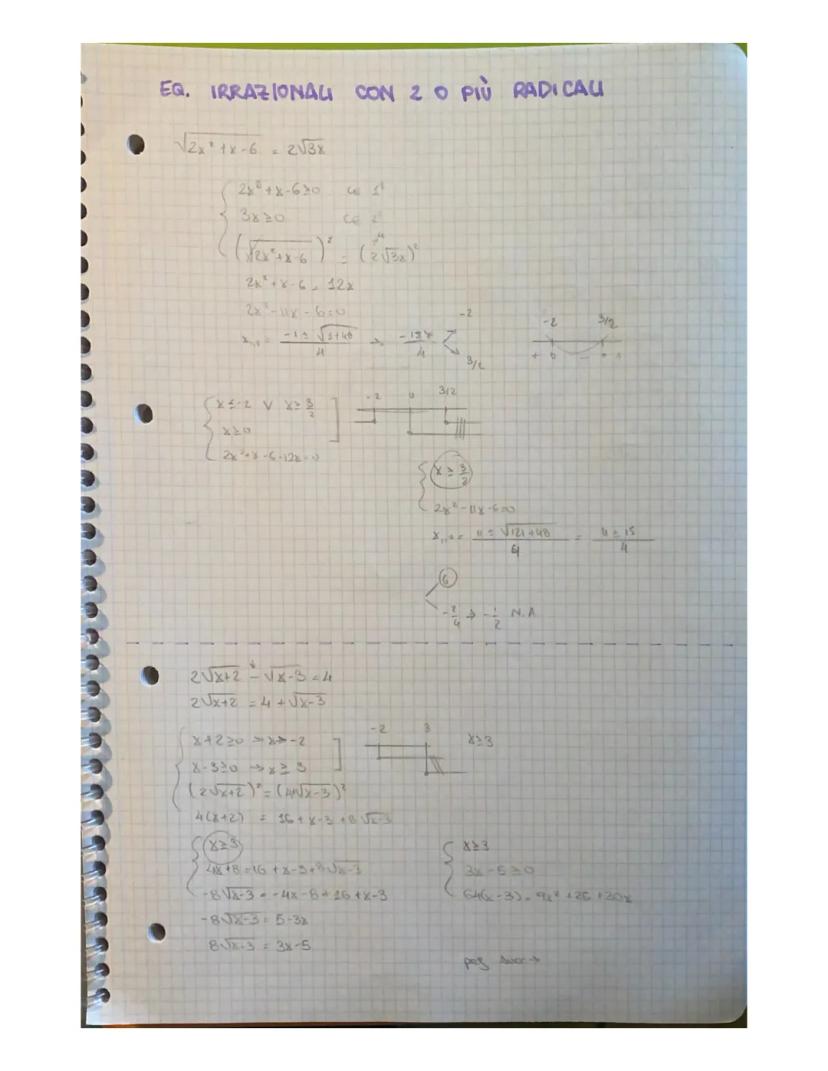 EQ. IRRAZIONALI CON 2 O PIÙ RADICALI
√2x²+x-6 = 2√3x
2x²+x-6≥0 CE 1°
3x≥0 CE 2°
(√2x²+x-6)² = (2√3x)²
2x²+x-6 = 12x
2x²-11x-6=0
x₁,₂ = -1±√1+48 / 4 → / 4 -2 3/2
-2 3/2
+ 0 - 0 +
x≤-2 V x≥3/2
x≥0
2x²+x-6-12x=0
-2 0 3/2
x≥3/2
2x²-11x-6=0
x₁,₂= 11±√121+48 / 4 = 11±15 / 4
6
-2/4 → -1/2 N.A
2√x+2 - √x-3 = 4
2√x+2 = 4+√x-3
x+2≥0 → x≥-2
x-3≥0 → x≥3
-2 3 x≥3
(2√x+2)² = (4+√x-3)²
4(x+2) = 16+x-3+8√x-3
x≥3
4x+8=16+x-3+8√x-3
-8√x-3 = -4x-8+16+x-3
-8√x-3 = 5-3x
8√x-3 = 3x-5
x≥3
3x-5≥0
64(x-3) = 9x²+25+30x
pag →